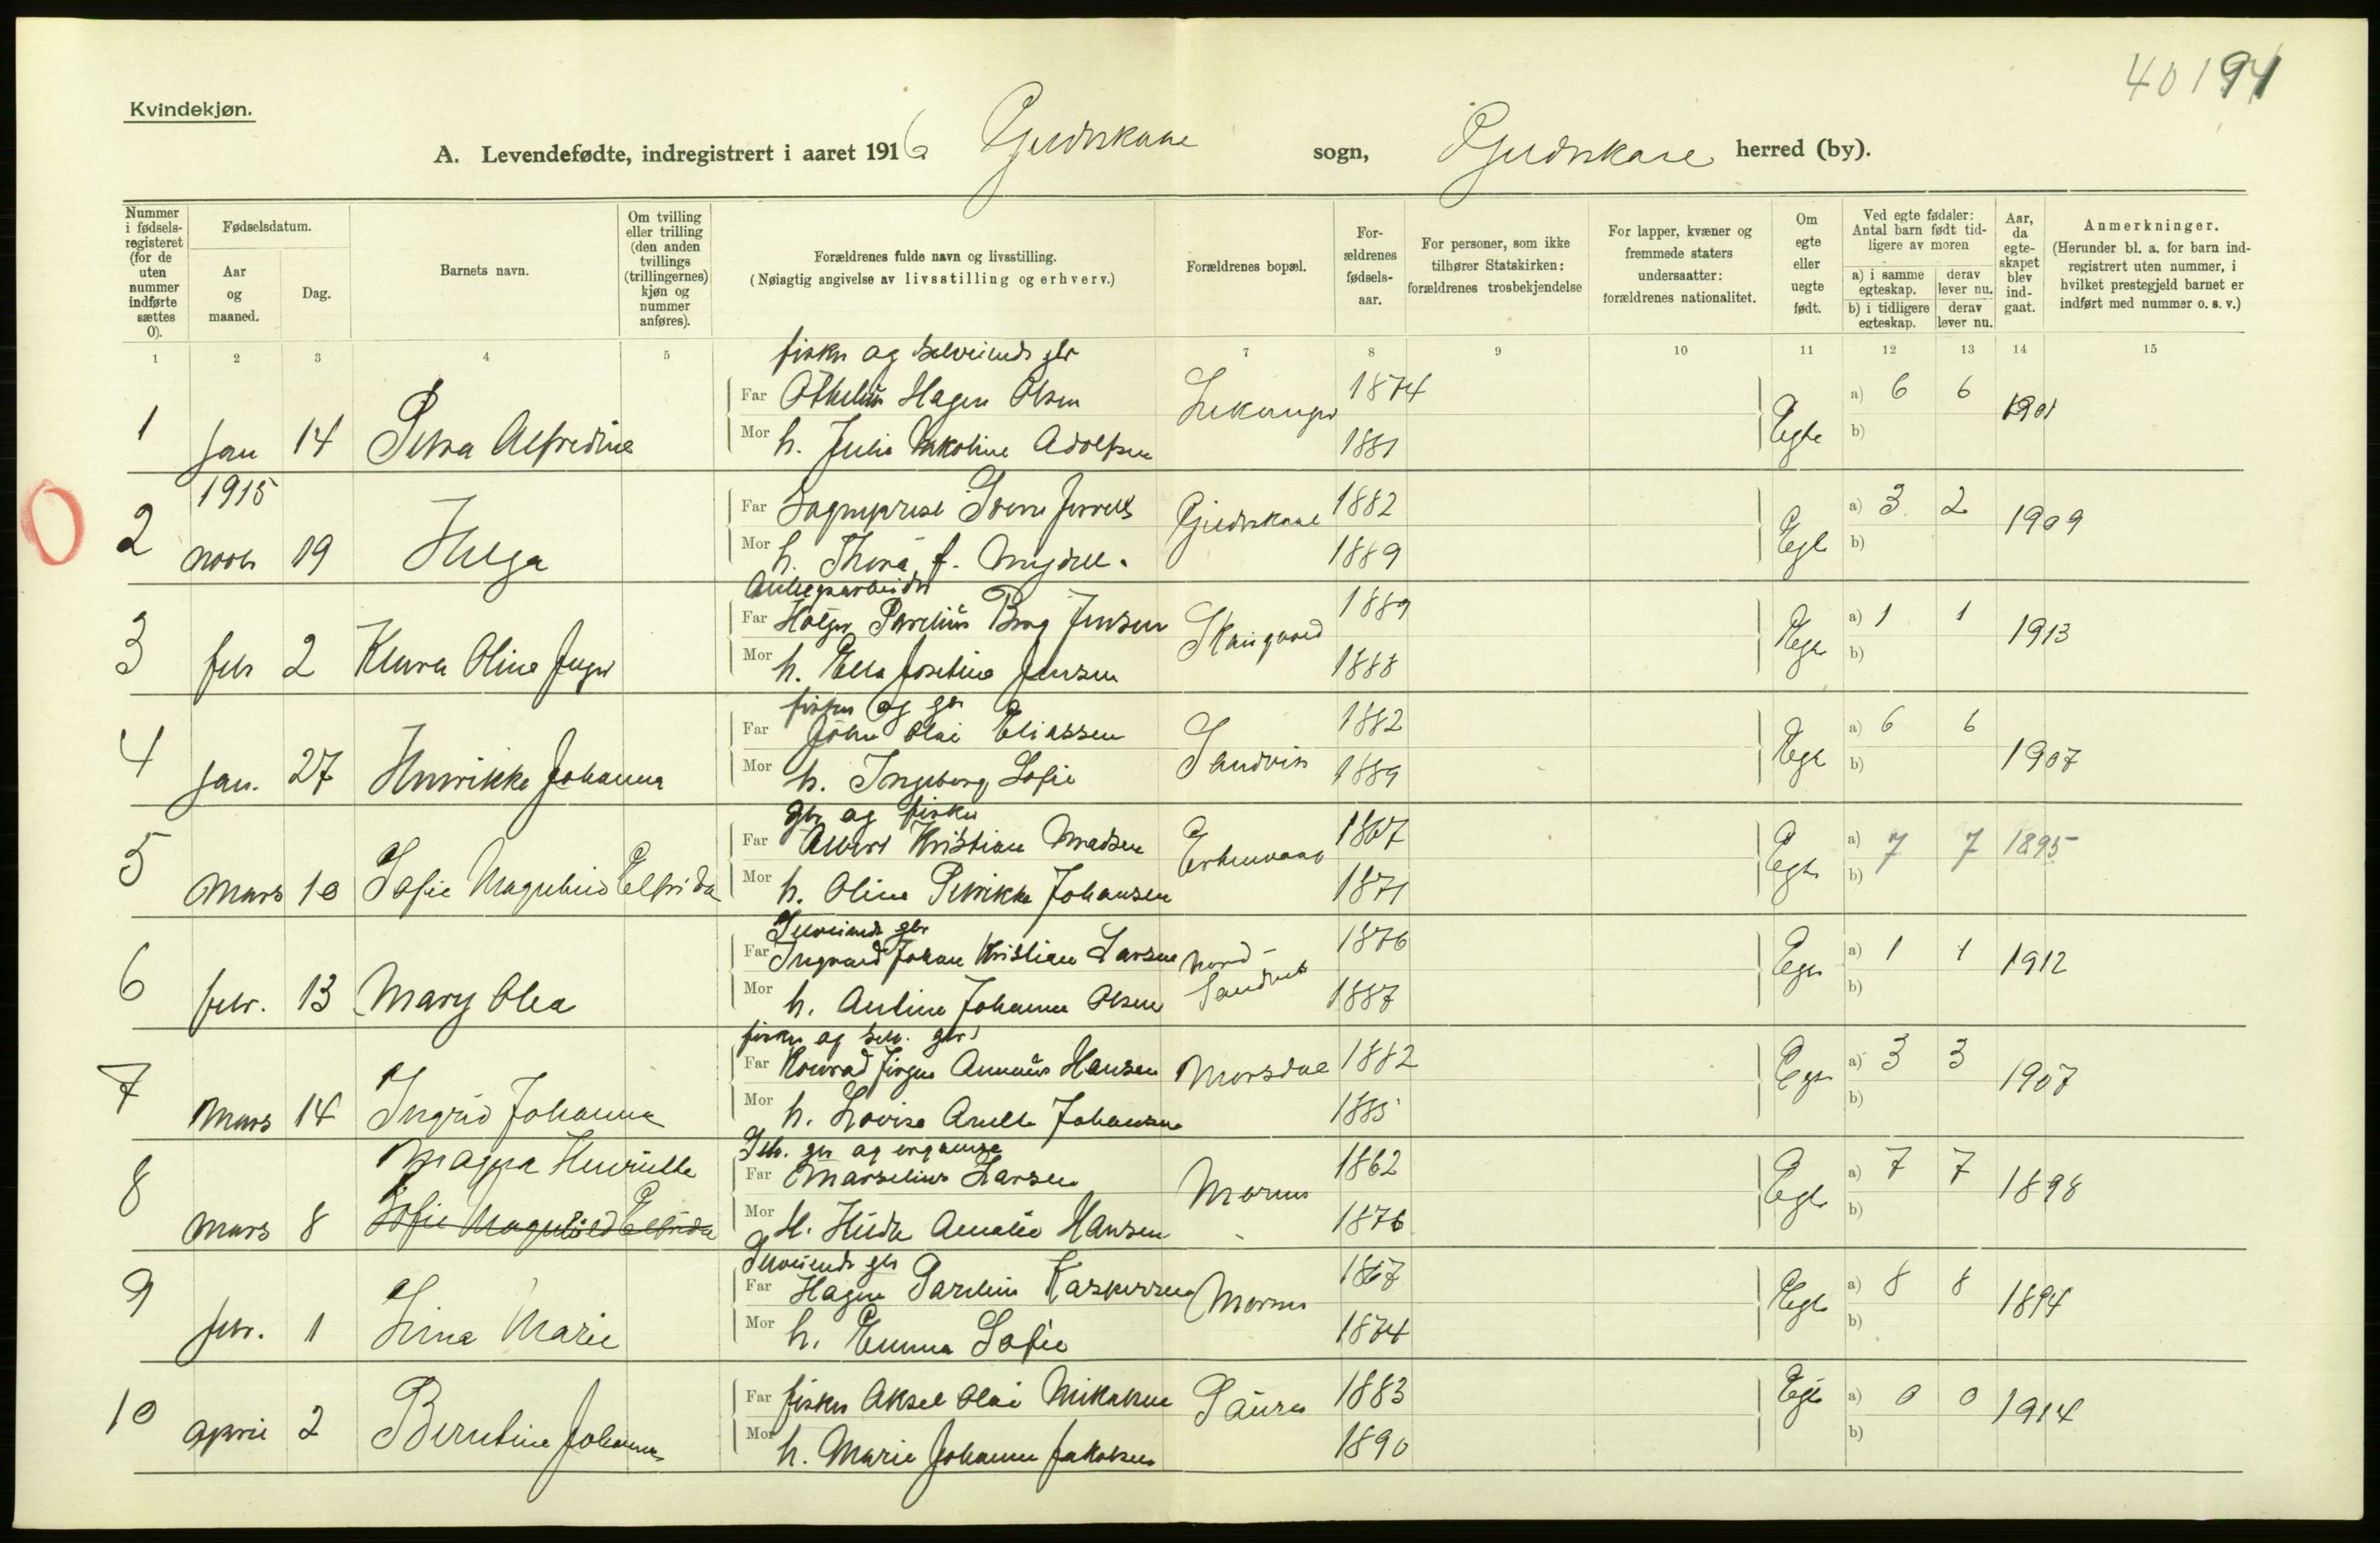 40194
Kvindekjøn.
A. Levendefødte, indregistrert i aaret 1916 Gjerdskane sogn, Gjerdskane herred (by).
Nummer i fødselsregisteret (for de uten nummer indførte sættes 0).
Fødselsdatum.
Aar og maaned.
Dag.
Barnets navn.
Om tvilling eller trilling (den anden tvillings (trillingernes) kjøn og nummer anføres).
Forældrenes fulde navn og livsstilling.
(Nøiagtig angivelse av livsstilling og erhverv.)
Forældrenes bopæl.
Forældrenes fødselsaar.
For personer, som ikke tilhører Statskirken: forældrenes trosbekjendelse
For lapper, kvæner og fremmede staters undersaatter: forældrenes nationalitet.
Om egte eller uegte født.
Ved egte fødsler: Antal barn født tidligere av moren
a) i samme egteskap.
derav lever nu.
b) i tidligere egteskap.
derav lever nu.
Aar, da egteskapet blev indgaat.
Anmerkninger.
(Herunder bl. a. for barn indregistrert uten nummer, i hvilket prestegjeld barnet er indført med nummer o. s. v.)
1 2 3 4 5 7 8 9 10 11 12 13 14 15
fisker og selveiende gbr
Far Othelius Hagen Olsen 1874 a) 6 6
1 Jan 14 Petra Alfredine Mor h. Julie Jakoline Adolfsen 1881 Egte b) 1901
1915
Far Sogneprest 1882 a) 3 2
0 2 novbr 19 Helga Mor h. Thora f. 1889 Egte b) 1909
Anlegsarbeider
Far Holger Parelius Jensen 1889 a) 1 1
3 febr 2 Klara Oline Inger Mor h. Ella Josefine Jensen 1888 Egte b) 1913
fisker og gbr
Far Johan Olai Eliassen Sandvik 1882 a) 6 6
4 Jan. 27 Henrikke Johanna Mor h. Ingeborg Sofie 1889 Egte b) 1907
gbr og fisker
Far Albert Kristian Madsen 1867 a) 7 7 1895
5 Mars 10 Sofie Magnhild Elfrida Mor h. Oline Petrikke Johansen 1871 Egte b)
Selveiende gbr
Far Ingvard Johan Kristian Larsen Nord- 1876 a) 1 1
6 febr. 13 Mary Olea Mor h. Antine Johanna Olsen 1887 Egte b) 1912
fisker og selv. gbr
Far Konrad Jørgen Hansen Morsdal 1882 a) 3 3
7 Mars 14 Ingrid Johanna Mor h. Lovise Johansen 1885 Egte b) 1907
Selv. gbr og
Magna Henriette Far Marselius Larsen 1862 a) 7 7
8 Mars 8 Sofie Magnhild Elfrida Mor H. Hilda Amalie Hansen 1876 Egte b) 1898
Selveiende gbr
Far Hagen Parelius Kaspersen 1867 a) 8 8
9 febr. 1 Marie Mor h. Emma Sofie 1874 Egte b) 1894
Far fisker Aksel Olai Mikalsen Saura 1883 Egte a) 0 0
10 April 2 Berntine Johanna Mor h. Marie Johanna Jakobsen 1890 b) 1914